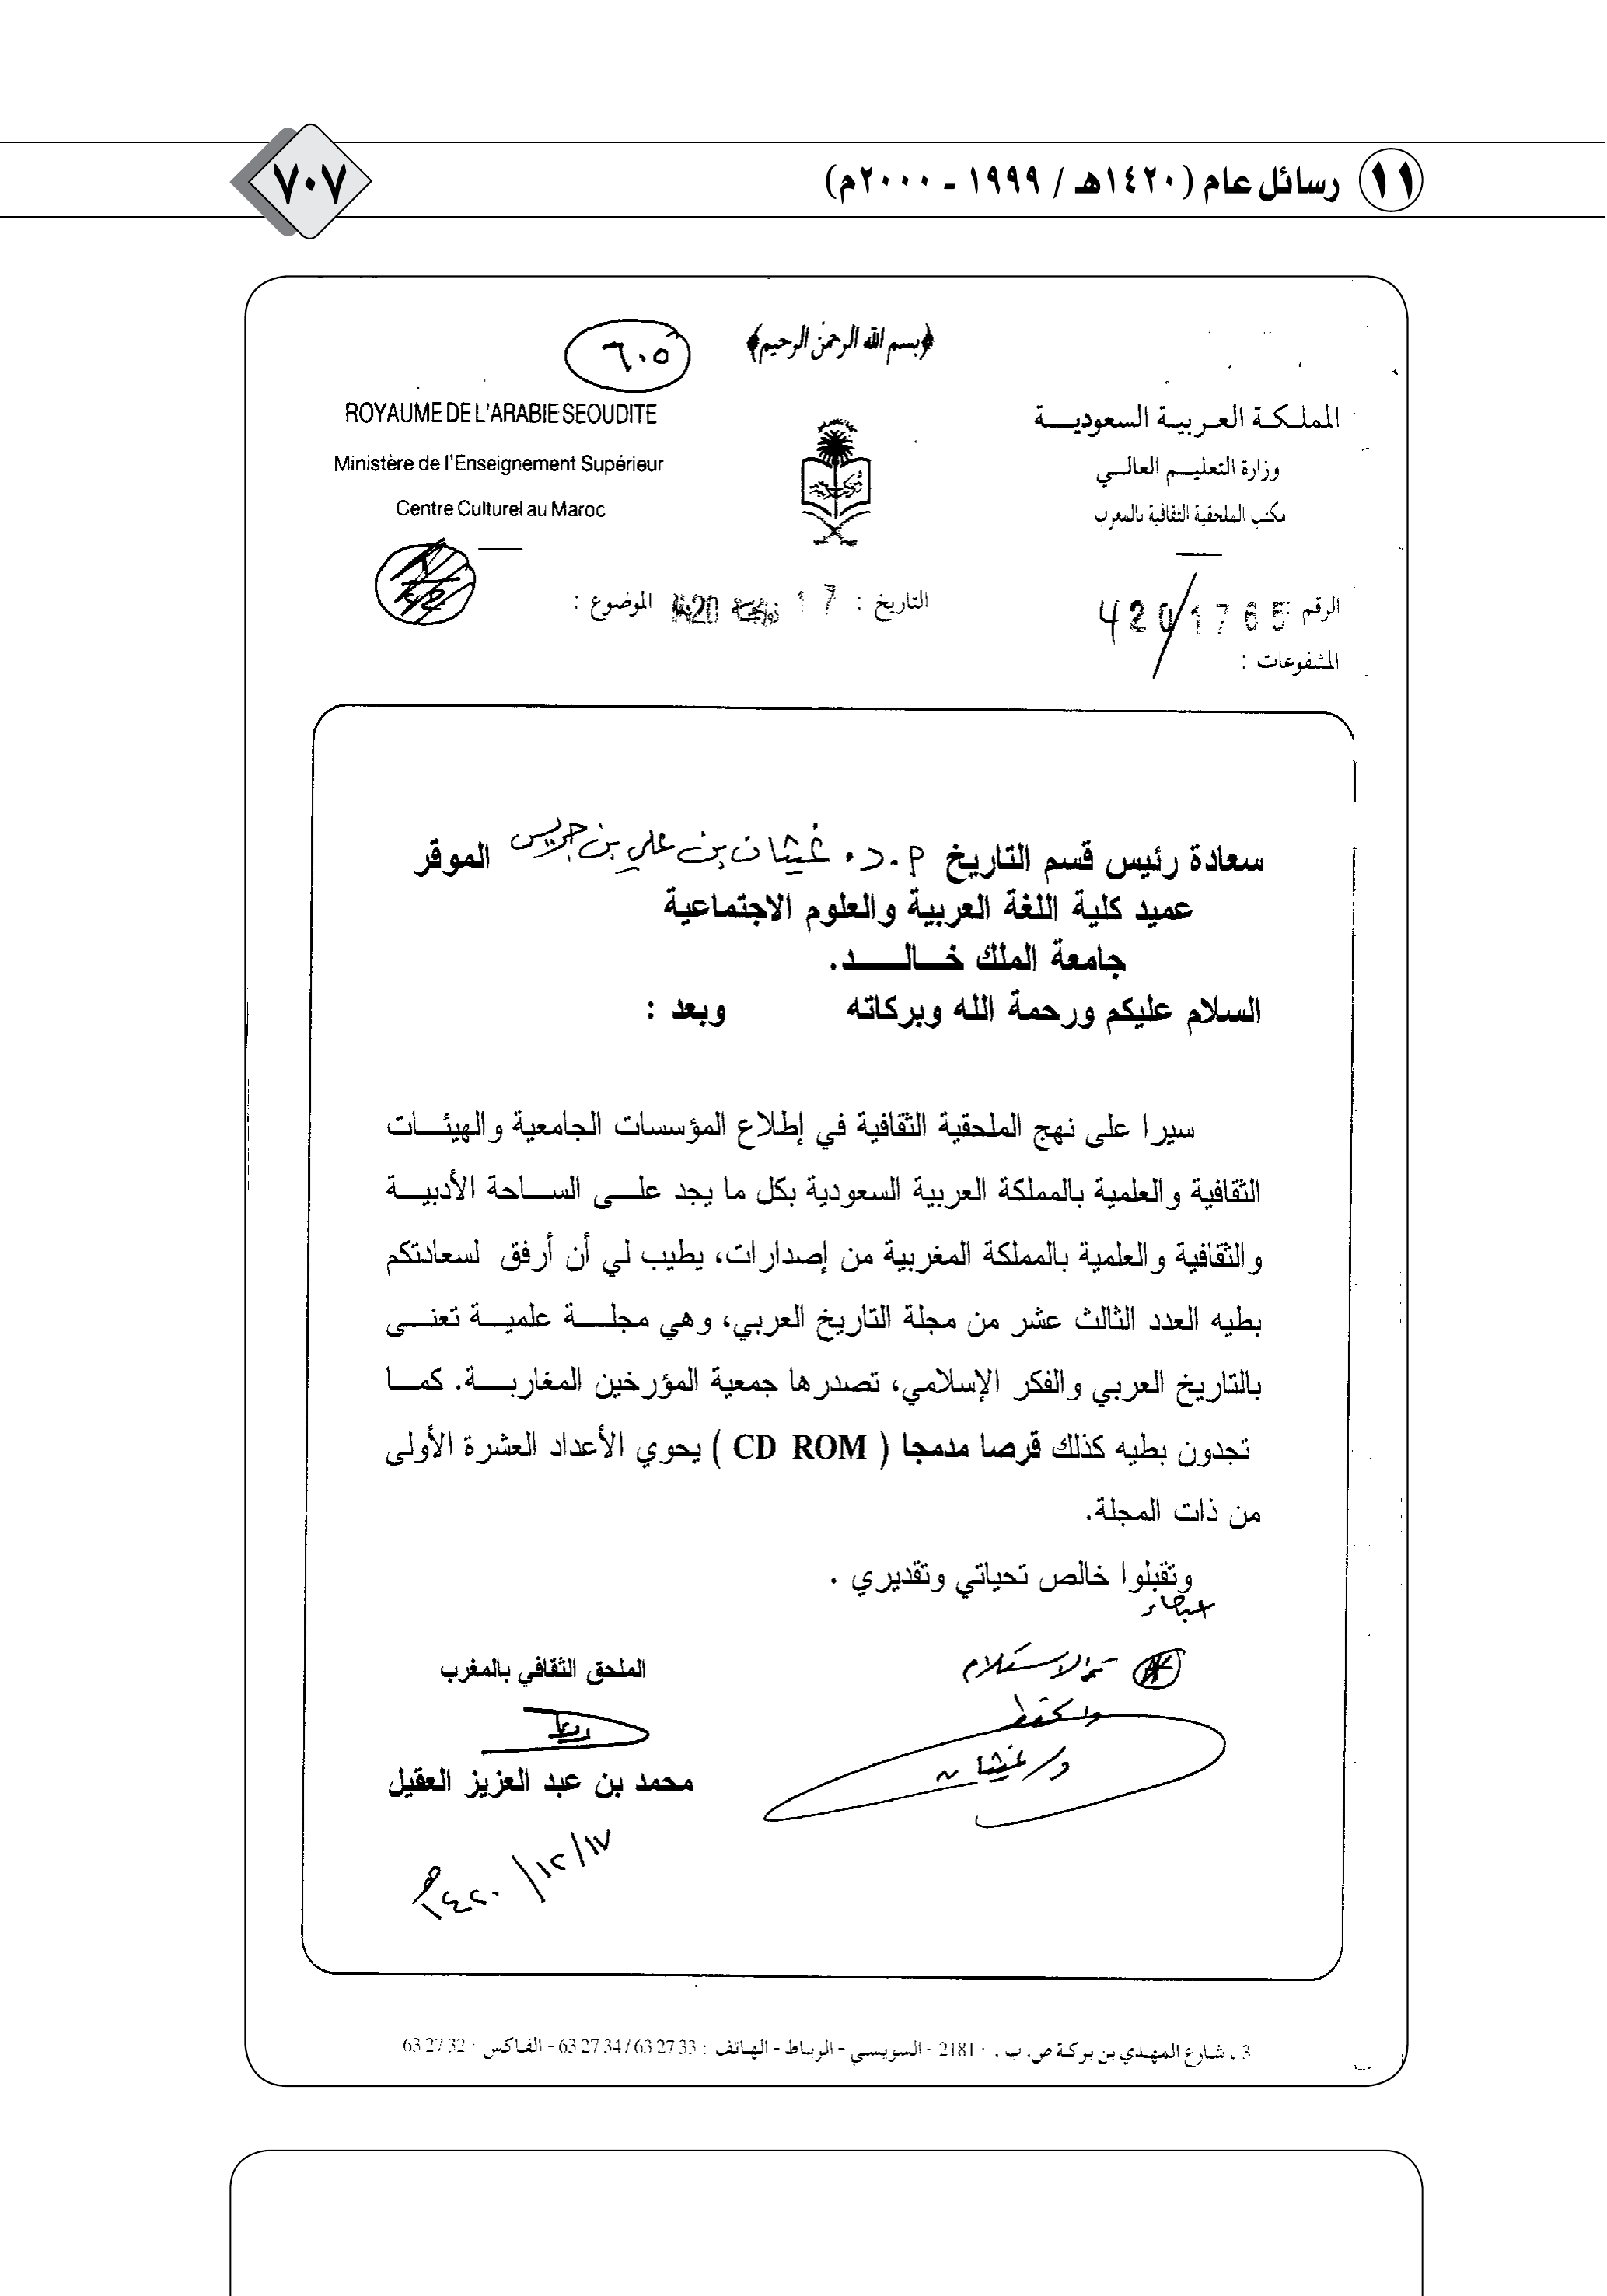 ١١ رسائل عام (١٤٢٠هـ / ١٩٩٩ - ٢٠٠٠م)
٧٠٧
﴿بسم الله الرحمن الرحيم﴾
٦٠٥
المملكة العربية السعودية
وزارة التعليم العالي
مكتب الملحقية الثقافية بالمغرب
ROYAUME DE L'ARABIE SEOUDITE
Ministère de l'Enseignement Supérieur
Centre Culturel au Maroc
الرقم : 420/1765
التاريخ : 17 1420
الموضوع :
المشفوعات :
سعادة رئيس قسم التاريخ م.د. غيثان بن علي بن جريس الموقر
عميد كلية اللغة العربية والعلوم الاجتماعية
جامعة الملك خالد.
السلام عليكم ورحمة الله وبركاته وبعد :
سيرا على نهج الملحقية الثقافية في إطلاع المؤسسات الجامعية والهيئات
الثقافية والعلمية بالمملكة العربية السعودية بكل ما يجد على الساحة الأدبية
والثقافية والعلمية بالمملكة المغربية من إصدارات، يطيب لي أن أرفق لسعادتكم
بطيه العدد الثالث عشر من مجلة التاريخ العربي، وهي مجلة علمية تعنى
بالتاريخ العربي والفكر الإسلامي، تصدرها جمعية المؤرخين المغاربة. كما
تجدون بطيه كذلك قرصا مدمجا ( CD ROM ) يحوي الأعداد العشرة الأولى
من ذات المجلة.
وتقبلوا خالص تحياتي وتقديري .
تم الاستلام
د/ غيثان
الملحق الثقافي بالمغرب
محمد بن عبد العزيز العقيل
١٤٢٠/١٢/١٧هـ
3 ، شارع المهدي بن بركة ص. ب . 2181 - السويسي - الرباط - الهاتف : 63 27 33 / 63 27 34 - الفاكس : 63 27 32